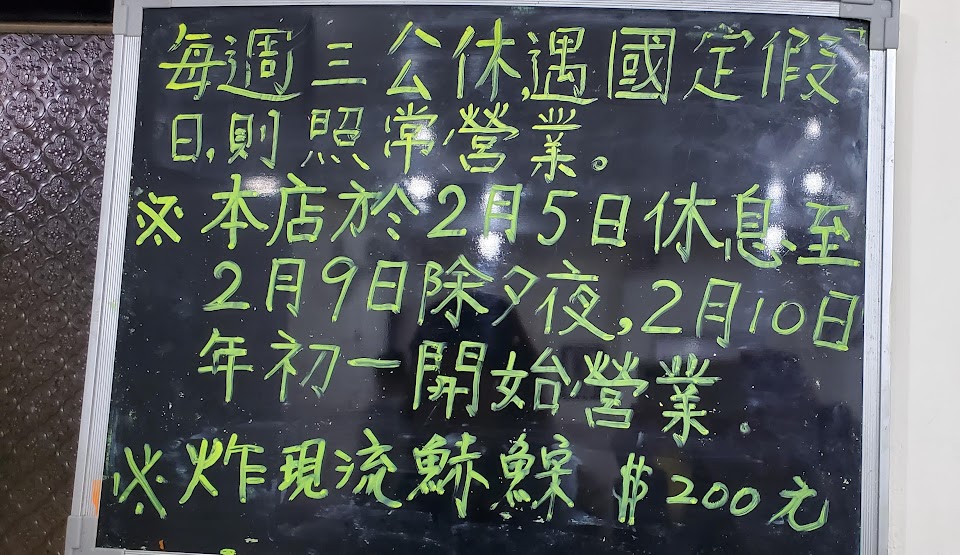 每週三公休,遇國定假
日,則照常營業。
※本店於2月5日休息至
2月9日除夕夜,2月10日
年初一開始營業.
※炸現流鯮 $200元